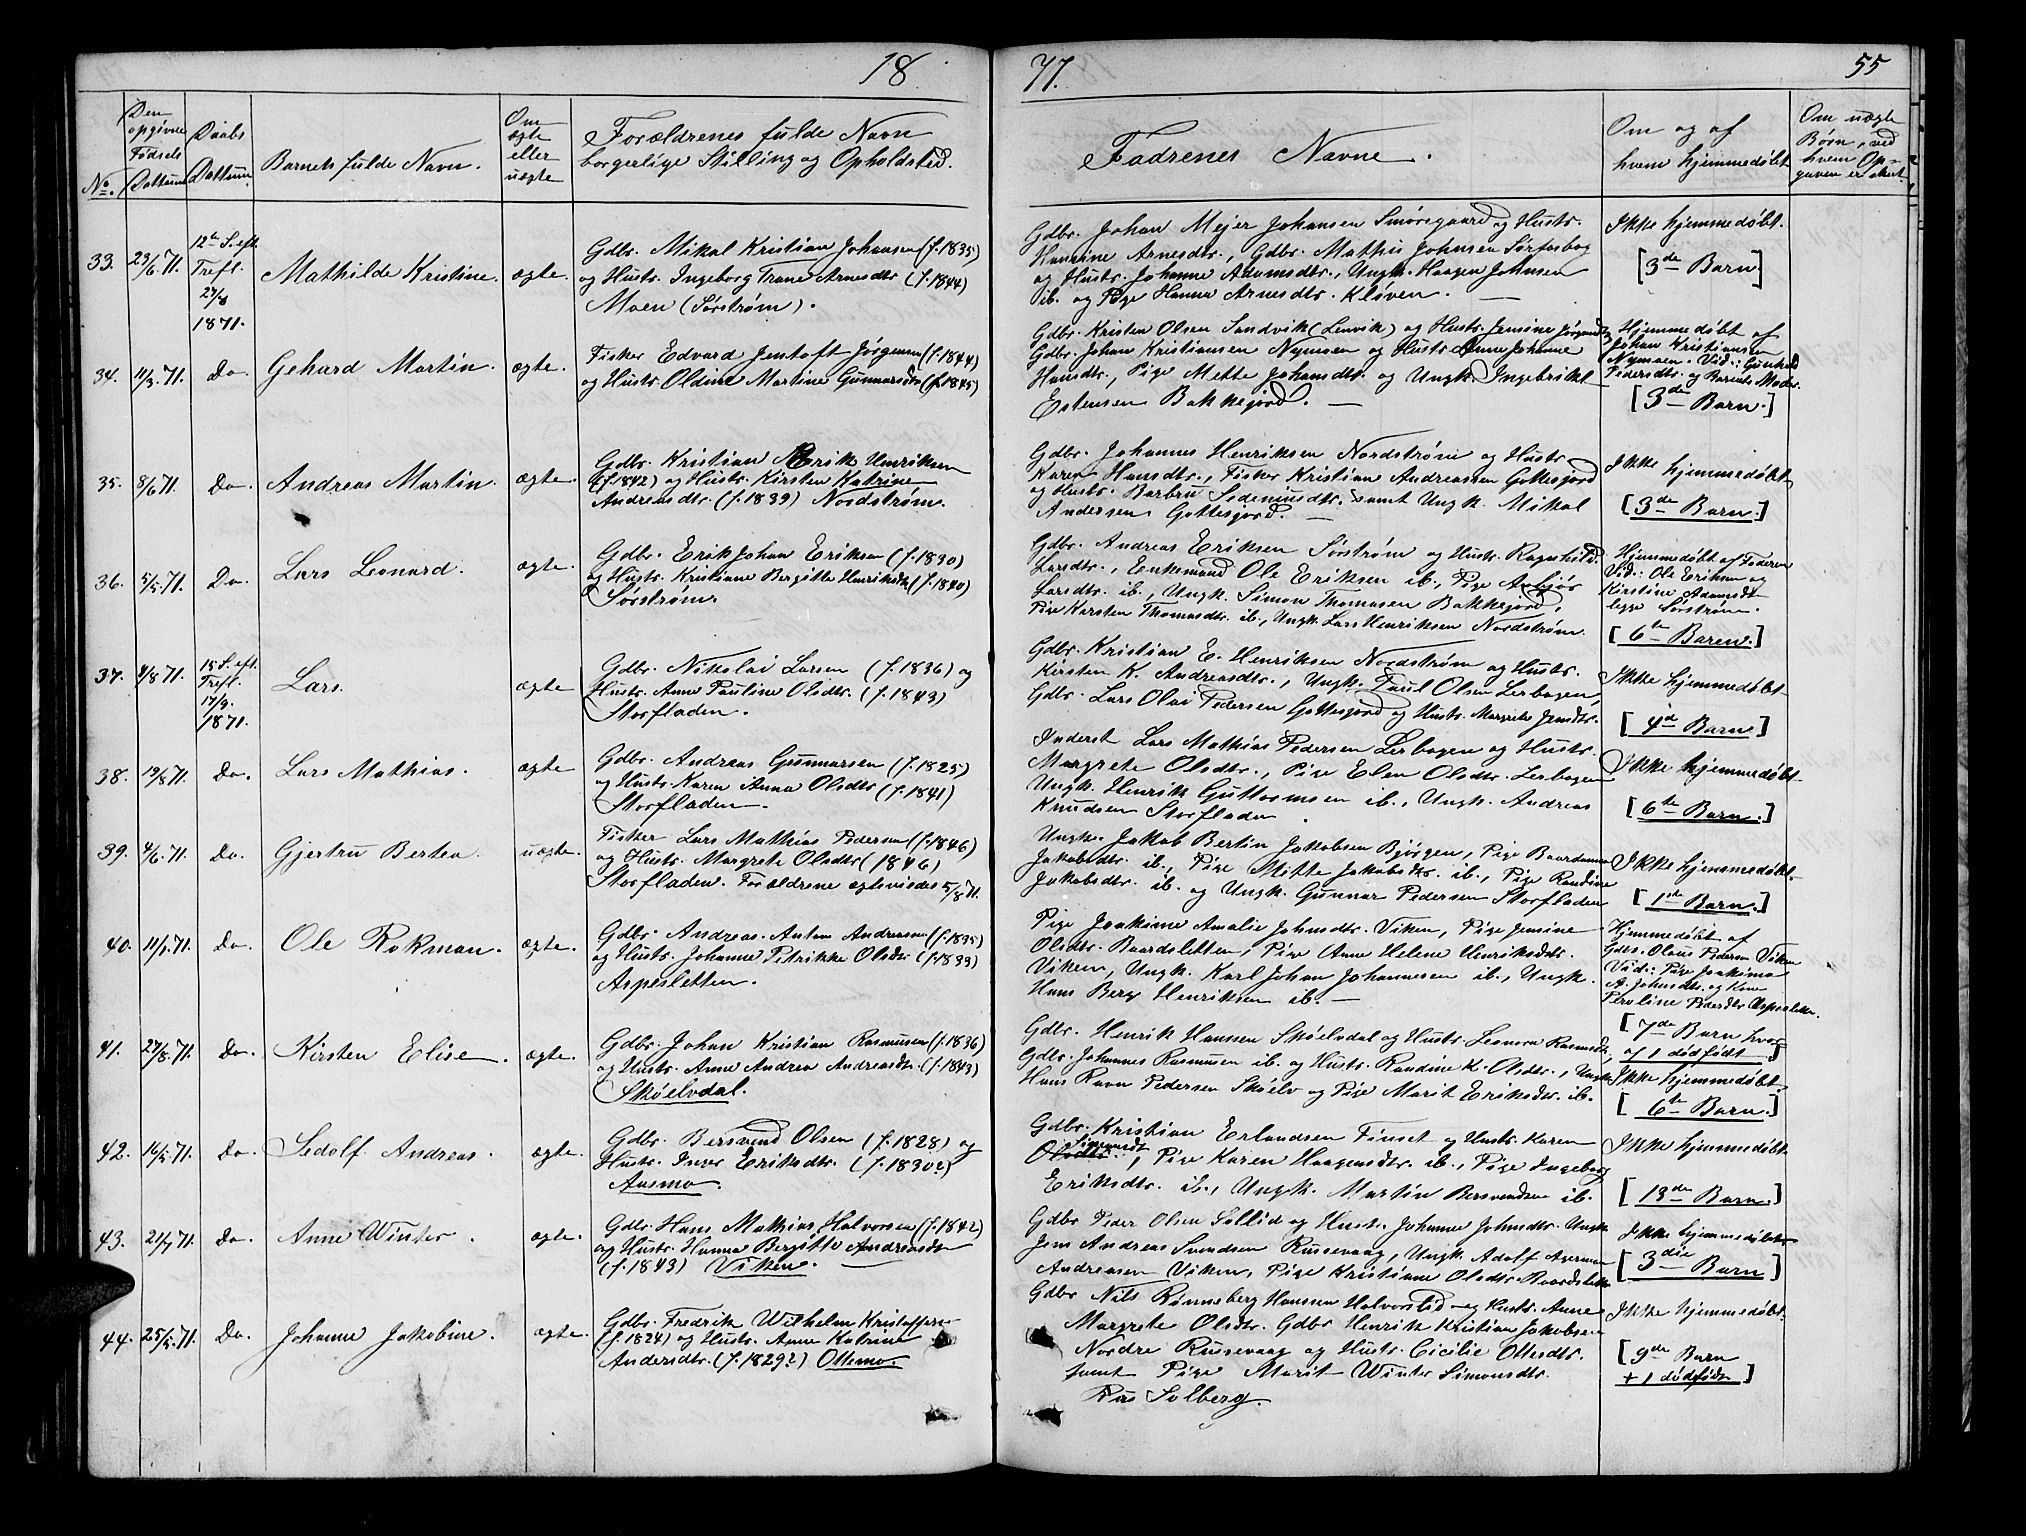 18
71.
55
No.
Den opgivne Fødsels Dattum
Daabs Dattum.
Barnets fulde Navn.
Om ægte eller uægte
Forældrenes fulde Navn
borgerlige Stilling og Opholdsted.
Fadrenes Navne.
Om og af
hvem hjemmedøbt
Om uægte
Børn, ved
hvem Op-
gaven er skeet.
33. 23/6 71. 12te S. eft. Trefl. 27/8 1871. Mathilde Kristine. ægte.
Gdbr. Mikal Kristian Johansen (f. 1835)
og Hustr. Ingeborg Trane Arnesdtr (f. 1844)
Moen (Sørstrøm).
Gdbr. Johan Mejer Johansen Smørsgaard og Hustr.
Hansine Arnesdtr., Gdbr. Mathis Johnsen Sørfasbog
og Hustr. Johanne Adamsdtr., Ungk. Haagen Johnsen
ib. og Pige Hanna Arnesdtr. Kløven.
Ikke hjemmedøbt.
[3de Barn]
34. 11/3 71. Do. Gehard Martin. ægte.
Fisker Edvard Jentoft Jørgensen (f. 1844)
og Hustr. Oldine Martine Gunnarsdtr (f. 1845)
Gdbr. Kristen Olsen Sandvik (Lenvik) og Hustr. Jensine Jørgensdtr
Gdbr. Johan Kristiansen Nymoen og Hustr. Anne Johanne
Hansdtr., Pige Mette Johansdtr. og Ungk. Ingebrikt
Estensen Bakkejord.
Hjemmedøbt af
Johan Kristiansen
Nymoen. Vid.: Gunhild
Pedersdtr. og Barnets Moder.
[3de Barn.]
35. 8/6 71. Do. Andreas Martin. ægte.
Gdbr. Kristian Erik Henriksen
(f. 1842) og Hustr. Kirsten Katrine
Andreasdtr. (f. 1839) Nordstrøm.
Gdbr. Johannes Henriksen Nordstrøm og Hustr.
Karen Hansdtr., Fisker Kristian Andreassen Gottesjord
og Hustr. Barbru Sedeniusdtr. samt Ungk. Mikal
Andersen Gottesjord.
Ikke hjemmedøbt
[3de Barn.]
36. 5/5 71. Do. Lars Leonard. ægte.
Gdbr. Erik Johan Eriksen (f. 1830)
og Hustr. Kristiane Bergitte Henriksdtr (f. 1840)
Sørstrøm.
Gdbr. Andreas Eriksen Sørstrøm og Hustr. Ragnhild
Larsdtr., Enkemand Ole Eriksen ib., Pige Anbjør
Larsdtr. ib., Ungk. Simon Thomasen Bakkejord,
Pige Karsten Thomasdtr. ib., Ungk. Lars Henriksen Nordstrøm.
Hjemmedøbt af Faderen
Vid.: Ole Eriksen og
Kirstine Adamsdtr
begge Sørstrøm.
[6te Baren.]
37. 4/8 71. 15 S. eft. Trefl. 17/9. 1871. Lars. ægte
Gdbr. Nikolai Larsen (f. 1836) og
Hustr. Anne Pauline Olsdtr. (f. 1843)
Storfladen.
Gdbr. Kristian E. Henriksen Nordstrøm og Hustr.
Kirsten K. Andreasdtr., Ungk. Paul Olsen Lerbogen,
Gdbr. Lars Olai Pedersen Gottesjord og Hustr. Margrete Jensdtr.
Ikke hjemmedøbt
[4d Barn]
38. 19/8 71. Do. Lars Mathias. ægte
Gdbr. Andreas Gunnarsen (f. 1825)
og Hustr. Karen Anna Olsdtr (f. 1841)
Storfladen.
Inderst Lars Mathias Pedersen Lerbogen og Hustr.
Margrete Olsdtr., Pige Elen Olsdtr. Lerbogen
Ungk. Henrik Guttormsen ib., Ungk. Andreas
Knudsen Storfladen.
Ikke hjemmedøbt
[6te Barn.]
39. 4/6 71. Do. Gjertru Bertea. uægte.
Fisker Lars Mathias Pedersen (f. 1846)
og Hustr. Margrete Olsdtr (1846)
Storfladen. Forældrene ægtevisdes 5/8 71.
Ungk. Jakob Bertin Jakobsen Bjørgen, Pige Baardanna
Jakobsdtr. ib., Pige Mette Jakobsdtr. ib., Pige Randine
Jakobsdtr. ib. og Ungk. Gunnar Pedersen Storfladen
Ikke hjemmedøbt.
[1ste Barn.]
40. 11/1 71. Do. Ole Rokman. ægte.
Gdbr. Andreas Anton Andreasen (f. 1835)
og Hustr. Johanne Petrikke Olsdtr (f. 1833)
Aspesletten.
Pige Joakime Amalie Johnsdtr. Viken, Pige Jensine
Olsdtr. Baardsletten, Pige Anne Helene Henriksdtr.
Viken, Ungk. Karl Johan Johannesen ib., Ungk.
Hans Berg Henriksen ib.
Hjemmedøbt af
Gdbr. Olaus Pedersen Viken
Vid.: Pige Joakima
A. Johnsdtr. og Kone
Peroline Pedersdtr. Aspesletten.
[7de Barn hvor
af 1 dødfødt]
41. 27/8 71. Do. Kirsten Elise. ægte.
Gdbr. Johan Kristian Rasmusen (f. 1836)
og Hustr. Anne Andrea Andreasdtr (f. 1843)
Skøelvdal.
Gdbr. Henrik Hansen Skøelvdal og Hustr. Leonora Rasmusdtr,
Gdbr. Johannes Rasmusen ib. og Hustr. Randine K. Olsdtr., Ungk.
Hans Ravn Pedersen Skøelv og Pige Marit Eriksdtr. ib.
Ikke hjemmedøbt
[6te Barn.]
42. 16/5 71. Do. Sedolf Andreas. ægte.
Gdbr. Bersvend Olsen (f. 1828) og
Hustr. Inger Eriksdtr. (f. 1830?)
Ausmo.
Gdbr. Kristian Erlandsen Finset og Hustr. Karen
Olsdtr. Simonsdtr, Pige Karen Haagensdtr. ib., Pige Ingeborg
Eriksdtr. ib., Ungk. Martin Bersvendsen ib.
Ikke hjemmedøbt
[13de Barn.]
43. 21/7 71. Do. Anne Winter. ægte.
Gdbr. Hans Mathias Halvorsen (f. 1842)
og Hustr. Hanna Bergitte Andreasdtr
(f. 1843) Viken.
Gdbr Peder Olsen Sollid og Hustr. Johanne Johnsdtr. Ungk
Jens Andreas Svendsen Russevaag, Ungk. Adolf Agerman
Andreasen Viken, Pige Kristiane Olsdtr. Baardsletten
Ikke hjemmedøbt
[3die Barn]
44. 25/5 71. Do. Johanne Jakobine. ægte.
Gdbr. Fredrik Wilhelm Kristoffersen
(f. 1824) og Hustr. Anne Katrine
Andersdtr. (f. 1829?) Ottemo.
Gdbr Nils Rønneberg Hanssen Halvorstid og Hustr. Anne
Margrete Olsdtr. Gdbr Henrik Kristian Jakobsen
Nordre Russevaag og Hustr. Cicilie Ottesdtr.
samt Pige Marit Winter Simonsdtr.
Solberg.
Ikke hjemmedøbt.
[9de Barn
+ 1 dødfødt]